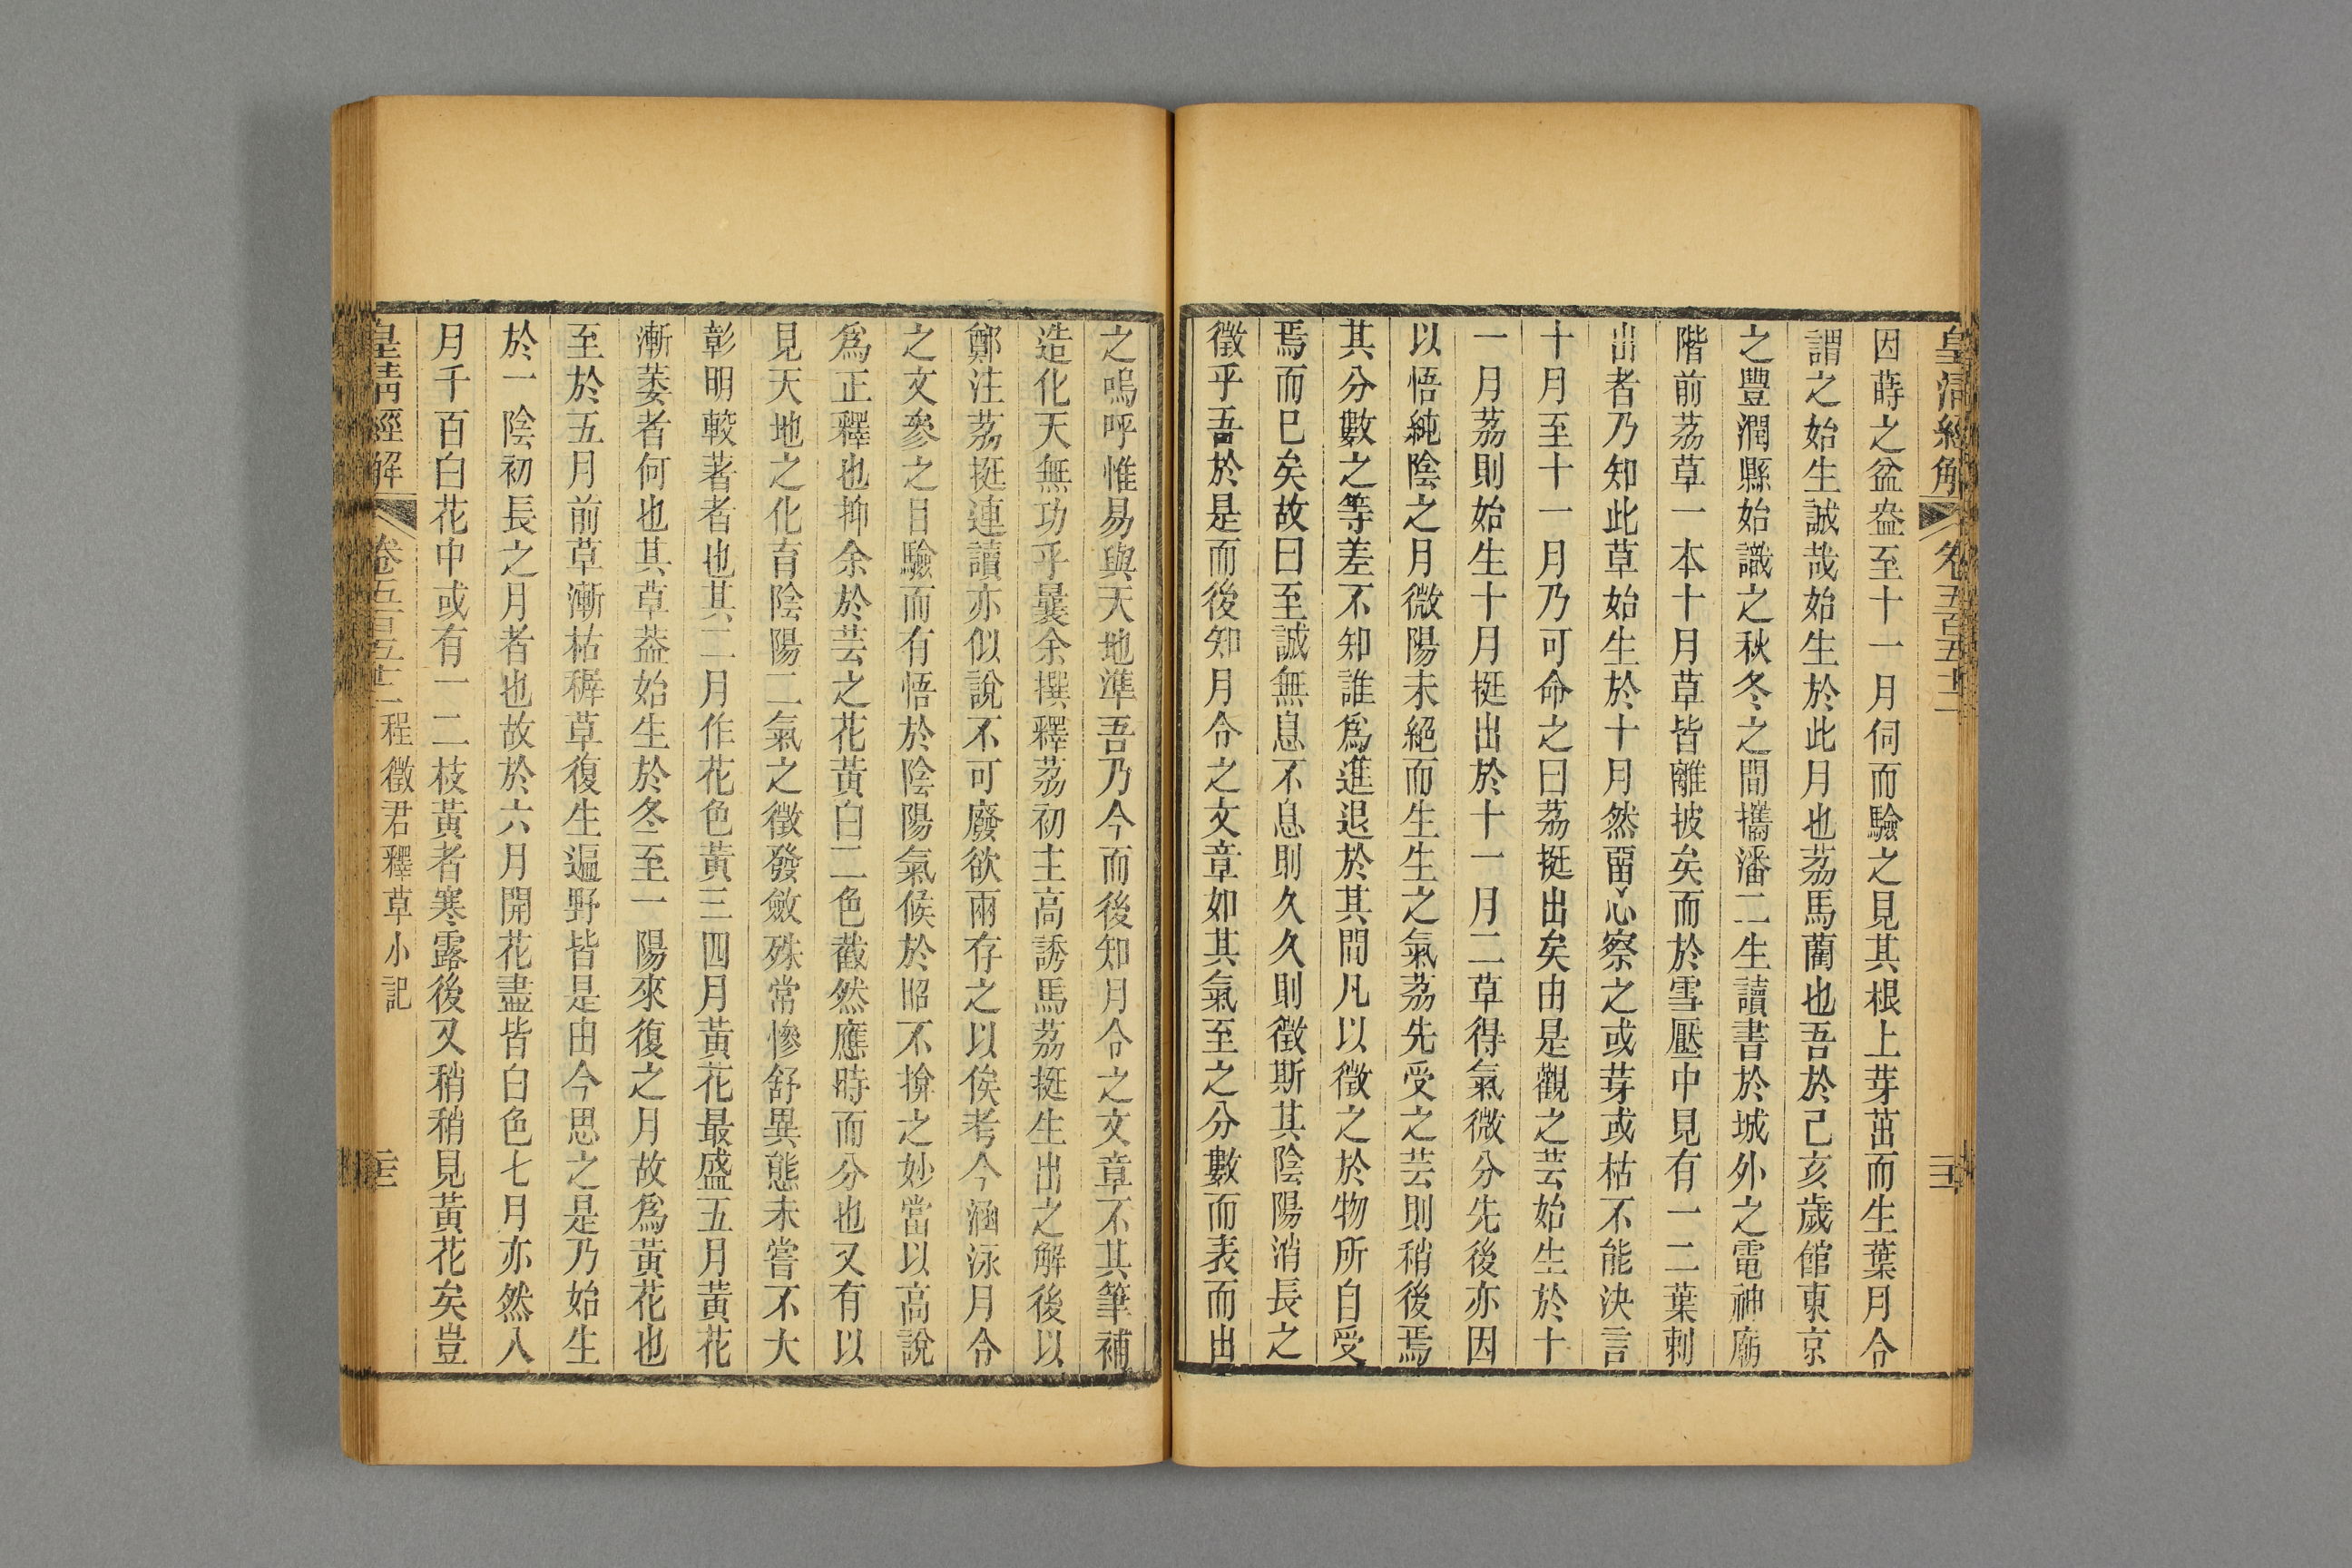 皇清經解 卷五百五十二
因蒔之盆盎至十一月伺而驗之見其根上芽茁而生葉月令
謂之始生誠哉始生於此月也荔馬藺也吾於己亥歲館東京
之豐潤縣始識之秋冬之間攜潘二生讀書於城外之電神廟
階前荔草一本十月草皆離披矣而於雪壓中見有一二葉刺
出者乃知此草始生於十月然畱心察之或芽或枯不能決言
十月至十一月乃可命之曰荔挺出矣由是觀之芸始生於十
一月荔則始生十月挺出於十一月二草得氣微分先後亦因
以悟純陰之月微陽未絕而生生之氣荔先受之芸則稍後焉
其分數之等差不知誰爲進退於其間凡以徵之於物所自受
焉而巳矣故曰至誠無息不息則久久則徵斯其陰陽消長之
徵乎吾於是而後知月令之文章如其氣至之分數而表而出
之嗚呼惟易與天地準吾乃今而後知月令之文章不其筆補
造化天無功乎曩余撰釋荔初主高誘馬荔挺生出之解後以
鄭注荔挺連讀亦似說不可廢欲兩存之以俟考今涵泳月令
之文參之目驗而有悟於陰陽氣候於昭不揜之妙當以高說
爲正釋也抑余於芸之花黃白二色截然應時而分也又有以
見天地之化育陰陽二氣之徵發斂殊常慘舒異態未嘗不大
彰明較著者也其二月作花色黃三四月黃花最盛五月黃花
漸萎者何也其草葢始生於冬至一陽來復之月故爲黃花也
至於五月前草漸枯稺草復生遍野皆是由今思之是乃始生
於一陰初長之月者也故於六月開花盡皆白色七月亦然入
月千百白花中或有一二枝黃者寒露後又稍稍見黃花矣豈
皇清經解 卷五百五十二 程徵君釋草小記